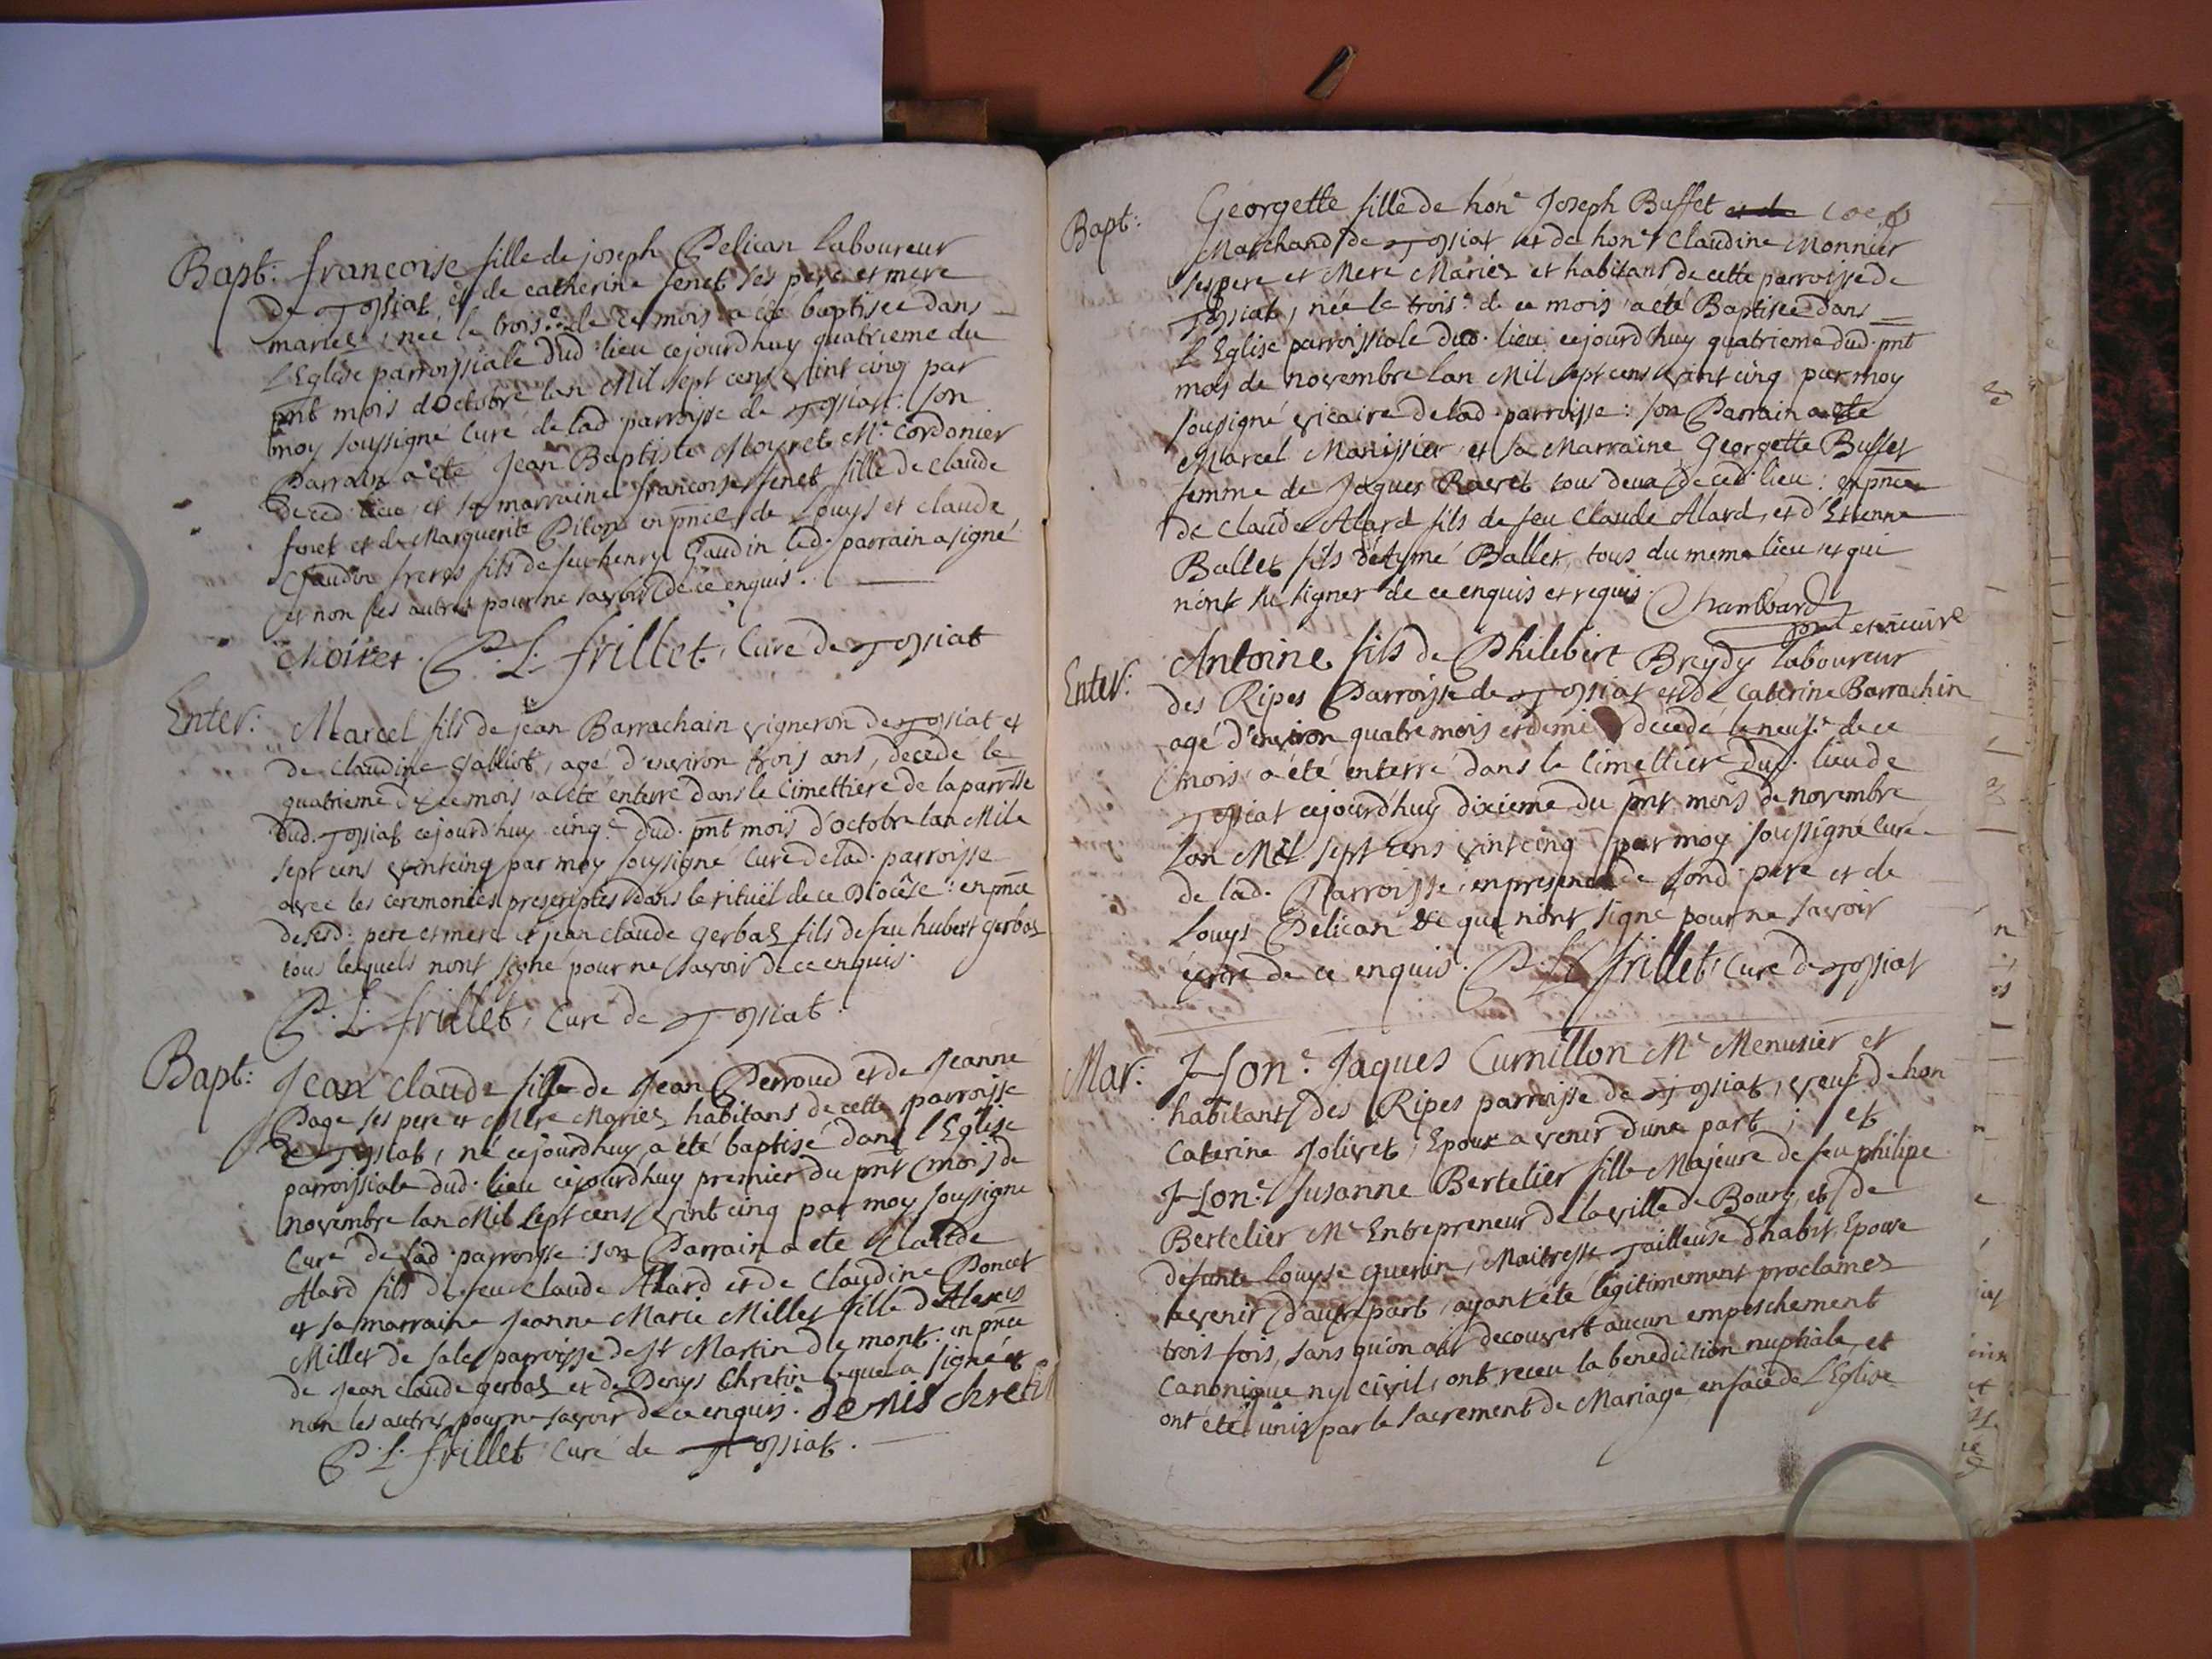 Bapt: francoise fille de joseph Pelican laboureur
de Tossiat et de catherine fenet ses pere et mere
mariez, née le trois.e de ce mois a été baptisée dans
l'Eglise parroissiale dud. lieu cejourdhuy quatrieme du
pnt mois doctobre lan Mil sept cens vint cinq par
moy soussigné Curé de lad. parroisse de Tossiat: son
Parrain a été Jean Baptiste Moyret Me Cordonier
de ced. lieu et sa marraine francoise fenet fille de claude
fenet et de Marguerite Piton en pnce de Louys et claude
Gaudin freres fils de feu henry Gaudin led. parrain a signé
et non les autres pour ne savoir de ce enquis.
Moiret. P. L. frillet, Curé de Tossiat
Enter: Marcel fils de jean Barrachain vigneron de Tossiat et
de Claudine, agé d'environ trois ans, decedé le
quatrieme de ce mois a été enterré dans le Cimettiere de la parrsse
dud. Tossiat cejourd'huy cinq.e dud. pnt mois d'octobre lan Mil
sept cens vint cinq par moy sousigné Curé de lad. parroisse
avec les ceremonies prescriptes dans le rituël de ce Diocêse: en pnce
de sesd: pere et mere et jean claude gerbaz fils de feu hubert gerbaz
tous lesquels nont signé pour ne savoir de ce enquis.
P. L. frillet, Curé de Tossiat.
Bapt: Jean claude fille de Jean Perroud et de Jeanne
Page ses pere et Mere Mariez habitans de cette parroisse
de Tossiat, né cejourdhuy, a été baptisé dans l'Eglise
parroissiale dud. lieu cejourdhuy premier du pnt mois de
novembre lan Mil sept cens vint cinq par moy soussigné
Curé de lad. parroisse: son Parrain a été Claude
Alard fils de feu Claude Alard et de Claudine Poncet
et sa marraine Jeanne Marie Millet fille d'Alexis
Millet de sales parroisse de St Martin de mont: en pnce
de Jean claude gerbaz et de Denys Chretin lequel a signé et
non les autres pour ne savoir de ce enquis. denis chretin
P. L. frillet Curé de Tossiat.
Bapt: Georgette fille de hon.e Joseph Buffet et de
Marchand de Tossiat et de hon.e Claudine Monnier
ses pere et Mere Mariez et habitans de cette parroisse de
Tossiat, née le trois.e de ce mois a été Baptisée dans
l'Eglise parroissiale dud. lieu cejourd'huy quatrieme dud. pnt
mois de novembre lan Mil sept cens vint cinq par moy
sousigné vicaire de lad. parroisse: son Parrain a été
Marcel Manissier et sa Marraine Georgette Buffet
femme de Jaques Ravet tous deux de ced. lieu: en pnce
de Claude Alard fils de feu Claude Alard, et d'Etienne
Ballet fils d'Aymé Ballet, tous du meme lieu et qui
n'ont su signer de ce enquis et requis. Chambard
ptre et vicaire
Enter: Antoine fils de Philibert Breydy laboureur
des Ripes Parroisse de Tossiat et de Caterine Barrachin
agé d'environ quatre mois et demi decedé le neuf.e de ce
mois a été enterré dans le Cimettiere dud. lieu de
Tossiat cejourd'huy dixieme du pnt mois de novembre
lan Mil sept cens vint cinq par moy soussigné Curé
de lad. Parroisse, en presence de sond. pere et de
Louys Pelican qui n'ont signé pour ne savoir
écrire de ce enquis. P. L. frillet, Curé de Tossiat
Mar: Hon.e Jaques Curnillon Me Menusier et
habitant des Ripes parroisse de Tossiat, veuf de hon
Caterine Jolivet, Epoux a venir d'une part; et
Hon.e Susanne Bertelier fille Majeure de feu philipe
Bertelier Me Entrepreneur de la ville de Bourg, et de
defunte Louyse guerin, Maitresse Tailleuse d'habit, Epouse
avenir d'autre part, ayant été légitimement proclamez
trois fois, sans qu'on ait decouvert aucun empeschement
Canonique ny civil, ont receu la benediction nuptiale, et
ont été unis par le sacrement de Mariage en face de l'Eglise